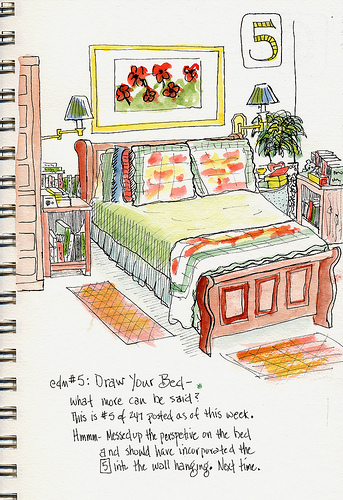 5
edm #5: Draw Your Bed-
what more can be said?
This is #5 of 241 posted as of this week.
Hmmm- Messed up the perspetive on the bed
and should have incorporated the
5 into the wall hanging. Next time.